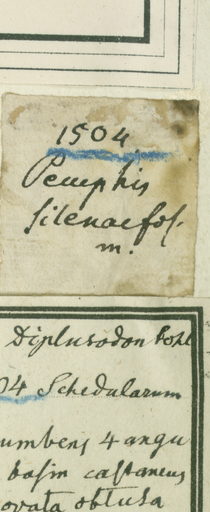 1504
Pemphis
silenaefol.
m.
Diplusodon Pohl
04 Schedularum
umbens 4 angu
basin castaneus
ovata obtusa